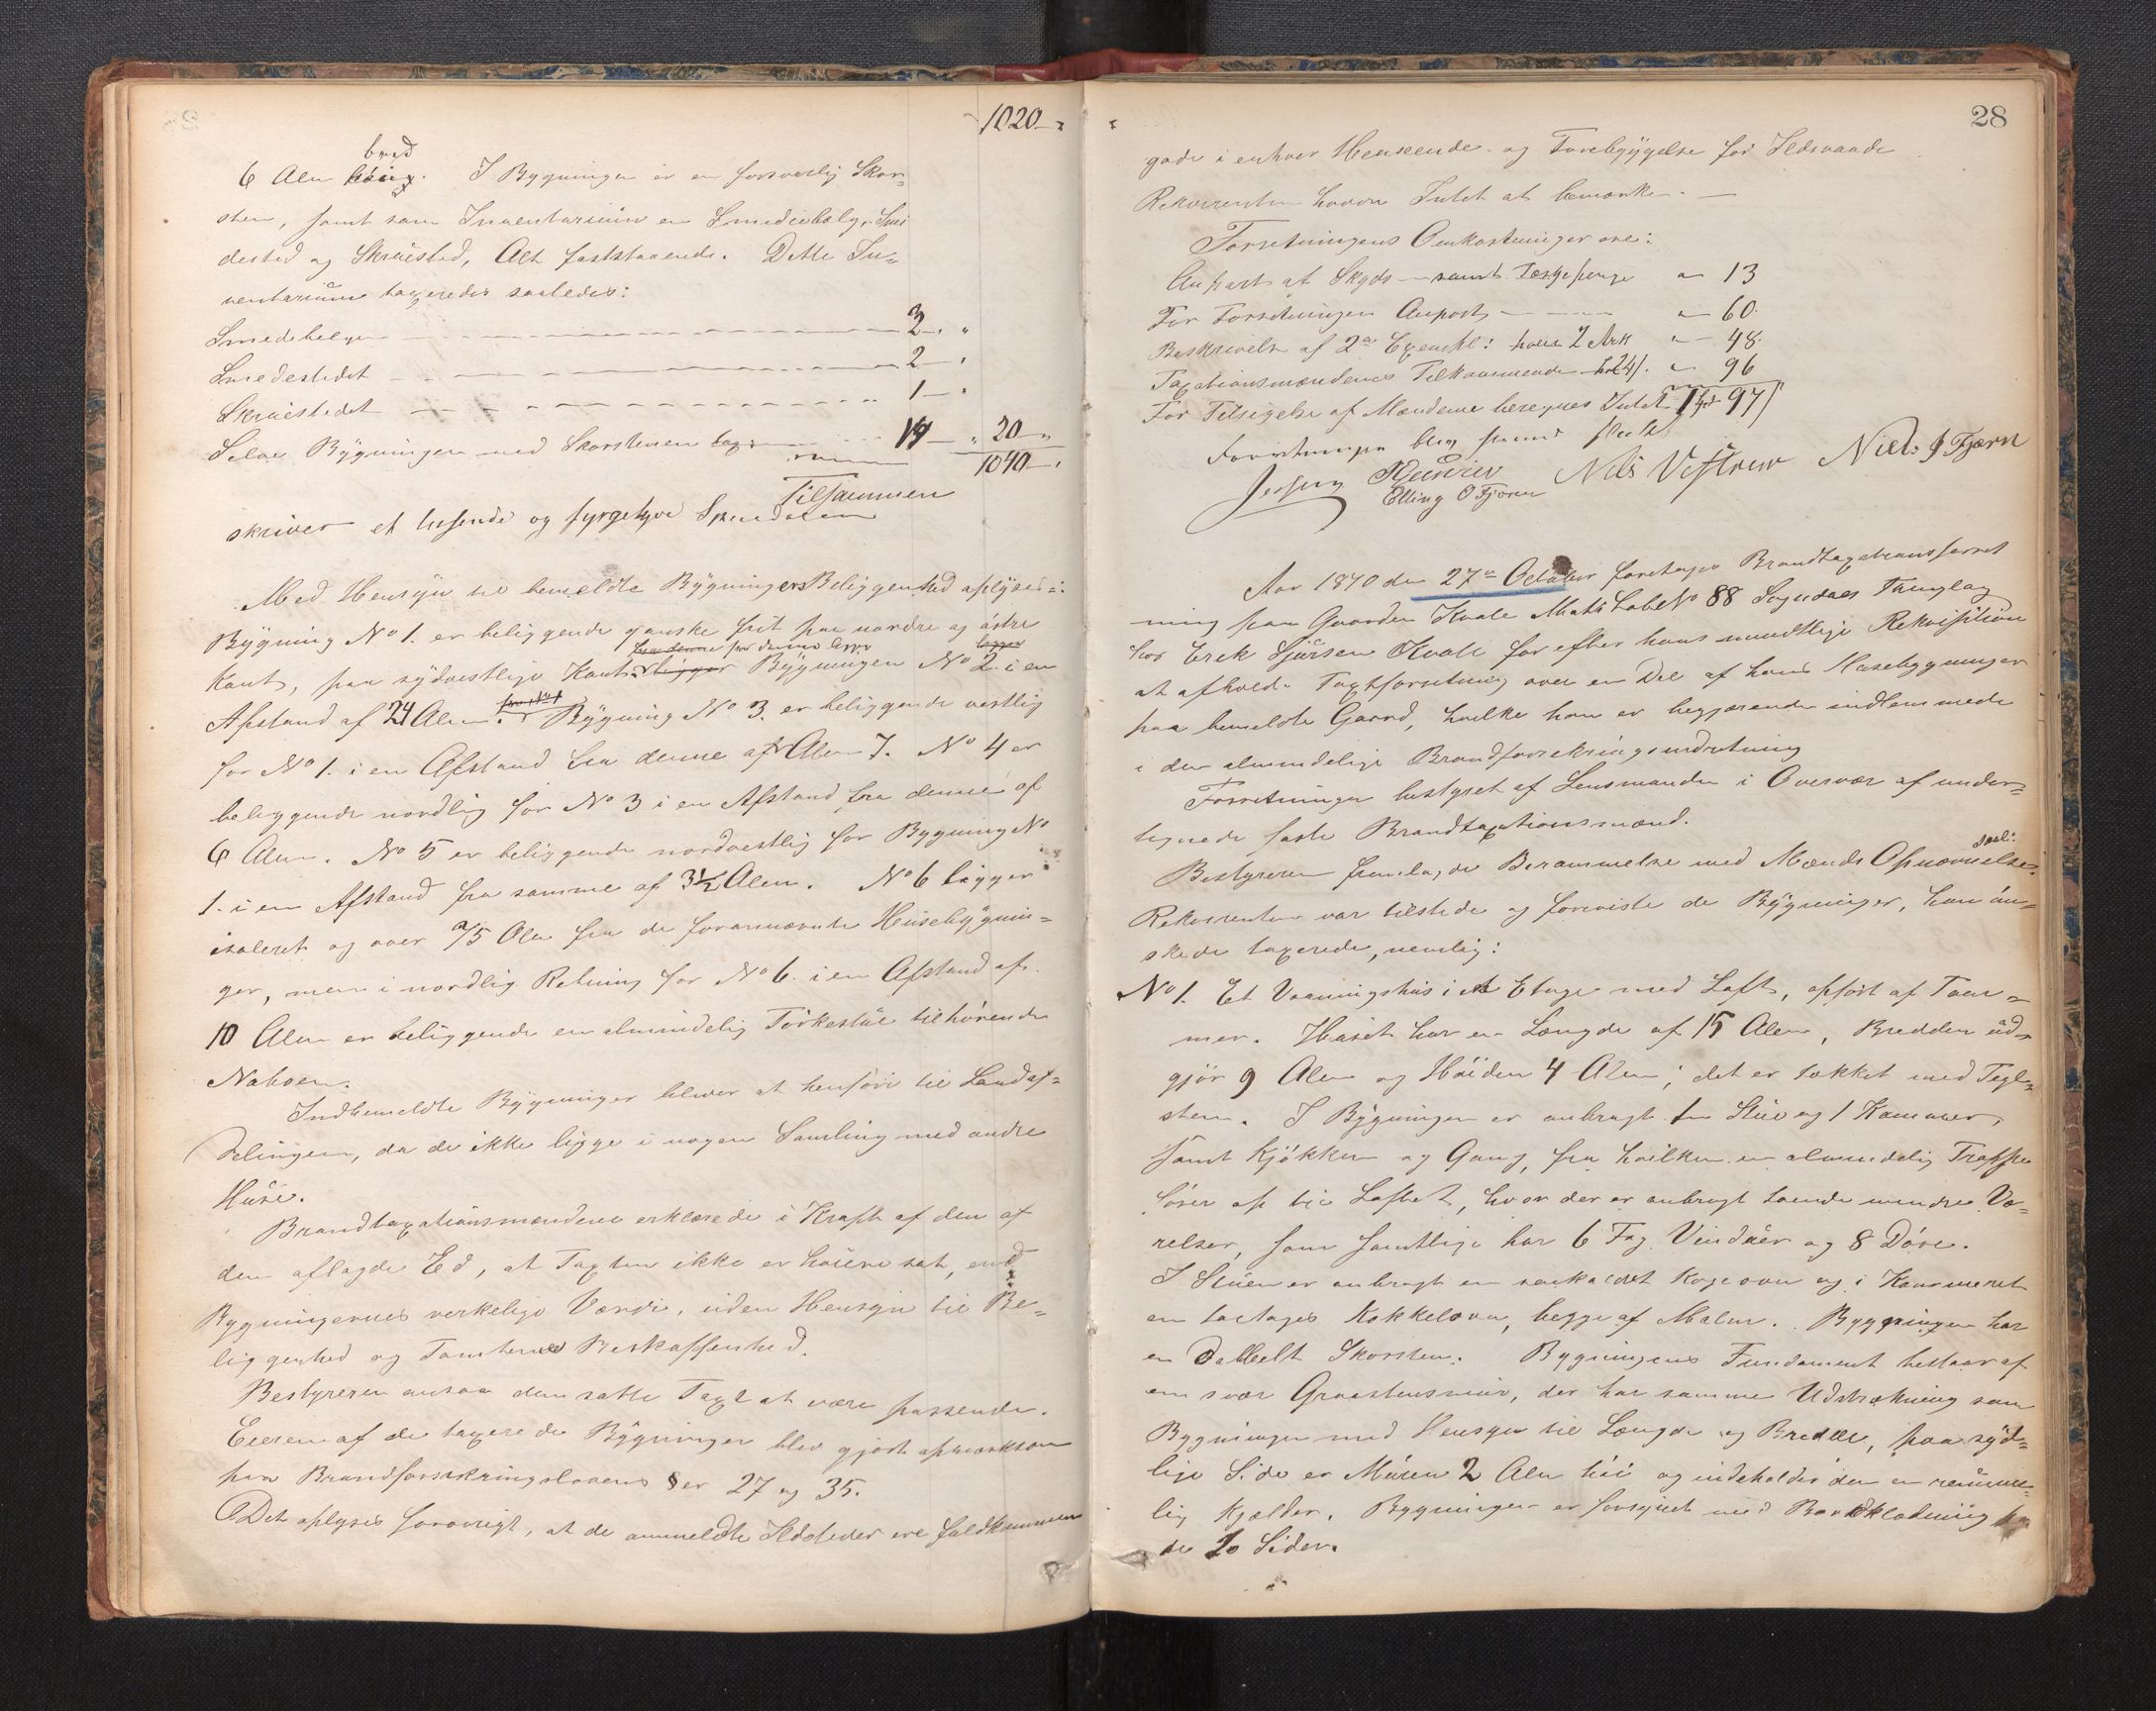 1020
bred
6 Alen høig. I Bygningen er en forsvarlig Skor-
sten, samt som Inventarium en Smediebælg, Smi
dested og Skruested, Alt faststaaende. Dette In-
ventarium taxeredes saaledes:
Smedebelgen 2 "
Smedestedet 2 "
Skruestedet 1 "
Selve Bygningen med Skorstenen 20
1040
Tilsammen
skriver et tusende og fyrgetyve Specidaler
Med Hensyn til bemeldte Bygningers Beliggenhed oplyses:
Bygning No 1. er beliggende ganske frit paa nordre og østre
fra denne
Kant, paa sydvestlige Kant ligger Bygningen No 2. i en
Afstand af 24 Alen. Bygning No 3. er beliggende vestlig
for No 1. i en Afstand fra denne af Alen 7. No 4 er
beliggende nordlig for No 3 i en Afstand fra denne af
6 Alen. No 5 er beliggende nordvestlig for Bygning No
1. i en Afstand fra samme af 3½ Alen. No 6 ligger
isoleret og over Alen fra de forannævnte Huusebygnin-
ger, men i nordlig Retning for No 6. i en Afstand af
10 Alen er beliggende en almindelig Törkestue tilhörende
Naboen.
Indbemeldte Bygninger bliver at henføre til Landaf-
delingen, da de ikke ligge i nogen Samling med andre
Huse.
Brandtaxationsmændene erklærede i Kraft af den af
dem aflagde Ed, at Taxten ikke er høiere sat, end
Bygningernes verkelige Værdi, uden Hensyn til Be-
liggenhed og Tomternes Beskaffenhed.
Bestyreren ansaa den satte Taxt at være passende.
Eieren af de taxerede Bygninger blev gjort opmærksom
paa Brandforsikringslovens §er 27 og 35.
Det oplyses forøvrigt, at de anmeldte Ildsteder ere fuldkommen
28
gode i enhver Henseende og Forebyggelse for Ildsvaade
Rekvirenten havde Intet at bemærke. —
Forretningens Omkostninger ere:
Anpart af Skyds samt 13
For Forretningen Anpart 60.
Beskrivelse af 2de Exempl: hver 2 Ark 48.
Taxationsmændenes Tilkommende à 24/. 96
For Tilsigelse af Mændene beregnes Intet 1 Spd 97/
Forretningen blev sluttet
Elling O Fjæren Nils Niels J Fjæren
Aar 1870 den 27de October foretages Brandtaxationsforret
ning paa Gaarden Kvale Matr Løbe No 88 Sogndals Thinglag
hos Erik Sjursen Kvale for efter hans mundtlige Rekvisition
at afholde Taxtforretning over en Del af hans Husebygninger
paa bemeldte Gaard, hvilke han er begjærende indlemmede
i den almindelige Brandforsikringsindretning
Forretningen bestyret af Lensmanden i Overvær af under-
tegnede faste Brandtaxtionsmænd.
Bestyreren fremlagde Berammelse med Mænds Opnævnelse.
Rekvirenten var tilstede og foreviste de Bygninger, han øn-
skede taxerede, nemlig:
No 1. Et Vaaningshus i et Etage med Loft, opført af Töm-
mer. Huset har en Længde af 15 Alen, Bredden ud-
gjör 9 Alen og Høiden 4 Alen; det er takket med Tegl-
sten. I Bygningen er anbragt en Stue og 1 Kammer,
samt Kjökken og Gang, fra hvilken en almindelig Trappe
förer op til Loftet, hvor der er anbragt tvende mindre Væ-
relser, som samtlige har 6 Fag Vinduer og 8 Döre.
I Stuen er anbragt en saakaldet Kogeovn og i Kammeret
en toetages Kakkelovn, begge af Malm. Bygningen har
en dobbelt Skorsten. Bygningens Fundament bestaar af
en svær Graastensmur, der har samme Udstrækning som
Bygningen med Hensyn til Længde og Bredde, paa syd-
lige Side er Muren 2 Alen höi og indeholder den en rumme-
lig Kjælder. Bygningen er forsynet med Bordklædning paa
de 2 Sider.